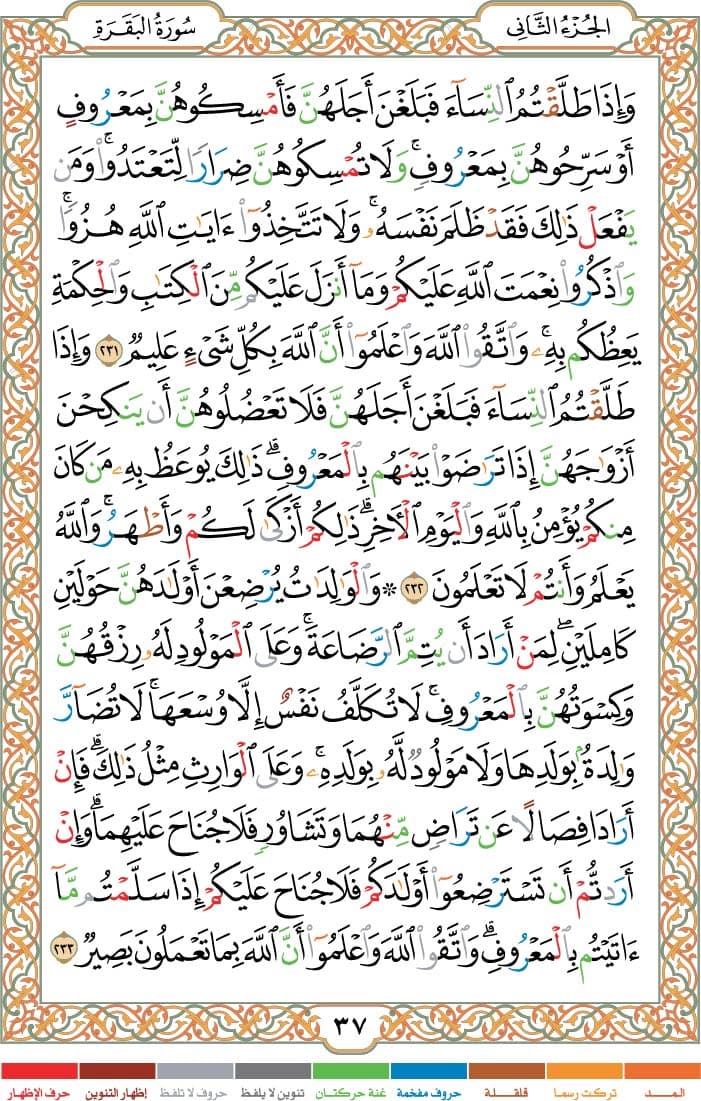 الجُزْءُ الثَّانِي
سُورَةُ البَقَرَةِ
وَإِذَا طَلَّقْتُمُ ٱلنِّسَآءَ فَبَلَغْنَ أَجَلَهُنَّ فَأَمْسِكُوهُنَّ بِمَعْرُوفٍ
أَوْ سَرِّحُوهُنَّ بِمَعْرُوفٍۚ وَلَا تُمْسِكُوهُنَّ ضِرَارًا لِّتَعْتَدُوا۟ۚ وَمَن
يَفْعَلْ ذَٰلِكَ فَقَدْ ظَلَمَ نَفْسَهُۥۚ وَلَا تَتَّخِذُوٓا۟ ءَايَٰتِ ٱللَّهِ هُزُوًاۚ
وَٱذْكُرُوا۟ نِعْمَتَ ٱللَّهِ عَلَيْكُمْ وَمَآ أَنزَلَ عَلَيْكُم مِّنَ ٱلْكِتَٰبِ وَٱلْحِكْمَةِ
يَعِظُكُم بِهِۦۚ وَٱتَّقُوا۟ ٱللَّهَ وَٱعْلَمُوٓا۟ أَنَّ ٱللَّهَ بِكُلِّ شَىْءٍ عَلِيمٌ ٢٣١ وَإِذَا
طَلَّقْتُمُ ٱلنِّسَآءَ فَبَلَغْنَ أَجَلَهُنَّ فَلَا تَعْضُلُوهُنَّ أَن يَنكِحْنَ
أَزْوَٰجَهُنَّ إِذَا تَرَٰضَوْا۟ بَيْنَهُم بِٱلْمَعْرُوفِۗ ذَٰلِكَ يُوعَظُ بِهِۦ مَن كَانَ
مِنكُمْ يُؤْمِنُ بِٱللَّهِ وَٱلْيَوْمِ ٱلْءَاخِرِۗ ذَٰلِكُمْ أَزْكَىٰ لَكُمْ وَأَطْهَرُۚ وَٱللَّهُ
يَعْلَمُ وَأَنتُمْ لَا تَعْلَمُونَ ٢٣٢ ۞ وَٱلْوَٰلِدَٰتُ يُرْضِعْنَ أَوْلَٰدَهُنَّ حَوْلَيْنِ
كَامِلَيْنِۖ لِمَنْ أَرَادَ أَن يُتِمَّ ٱلرَّضَاعَةَۚ وَعَلَى ٱلْمَوْلُودِ لَهُۥ رِزْقُهُنَّ
وَكِسْوَتُهُنَّ بِٱلْمَعْرُوفِۚ لَا تُكَلَّفُ نَفْسٌ إِلَّا وُسْعَهَاۚ لَا تُضَآرَّ
وَٰلِدَةٌۢ بِوَلَدِهَا وَلَا مَوْلُودٌ لَّهُۥ بِوَلَدِهِۦۚ وَعَلَى ٱلْوَارِثِ مِثْلُ ذَٰلِكَۗ فَإِنْ
أَرَادَا فِصَالًا عَن تَرَاضٍ مِّنْهُمَا وَتَشَاوُرٍ فَلَا جُنَاحَ عَلَيْهِمَاۗ وَإِنْ
أَرَدتُّمْ أَن تَسْتَرْضِعُوٓا۟ أَوْلَٰدَكُمْ فَلَا جُنَاحَ عَلَيْكُمْ إِذَا سَلَّمْتُم مَّآ
ءَاتَيْتُم بِٱلْمَعْرُوفِۗ وَٱتَّقُوا۟ ٱللَّهَ وَٱعْلَمُوٓا۟ أَنَّ ٱللَّهَ بِمَا تَعْمَلُونَ بَصِيرٌ ٢٣٣
٣٧
المـــد تركت رسما قلقـلـة حروف مفخمة غنة حركتان تنوين لا يلفظ حروف لا تلفظ إظهار التنوين حرف الإظهار